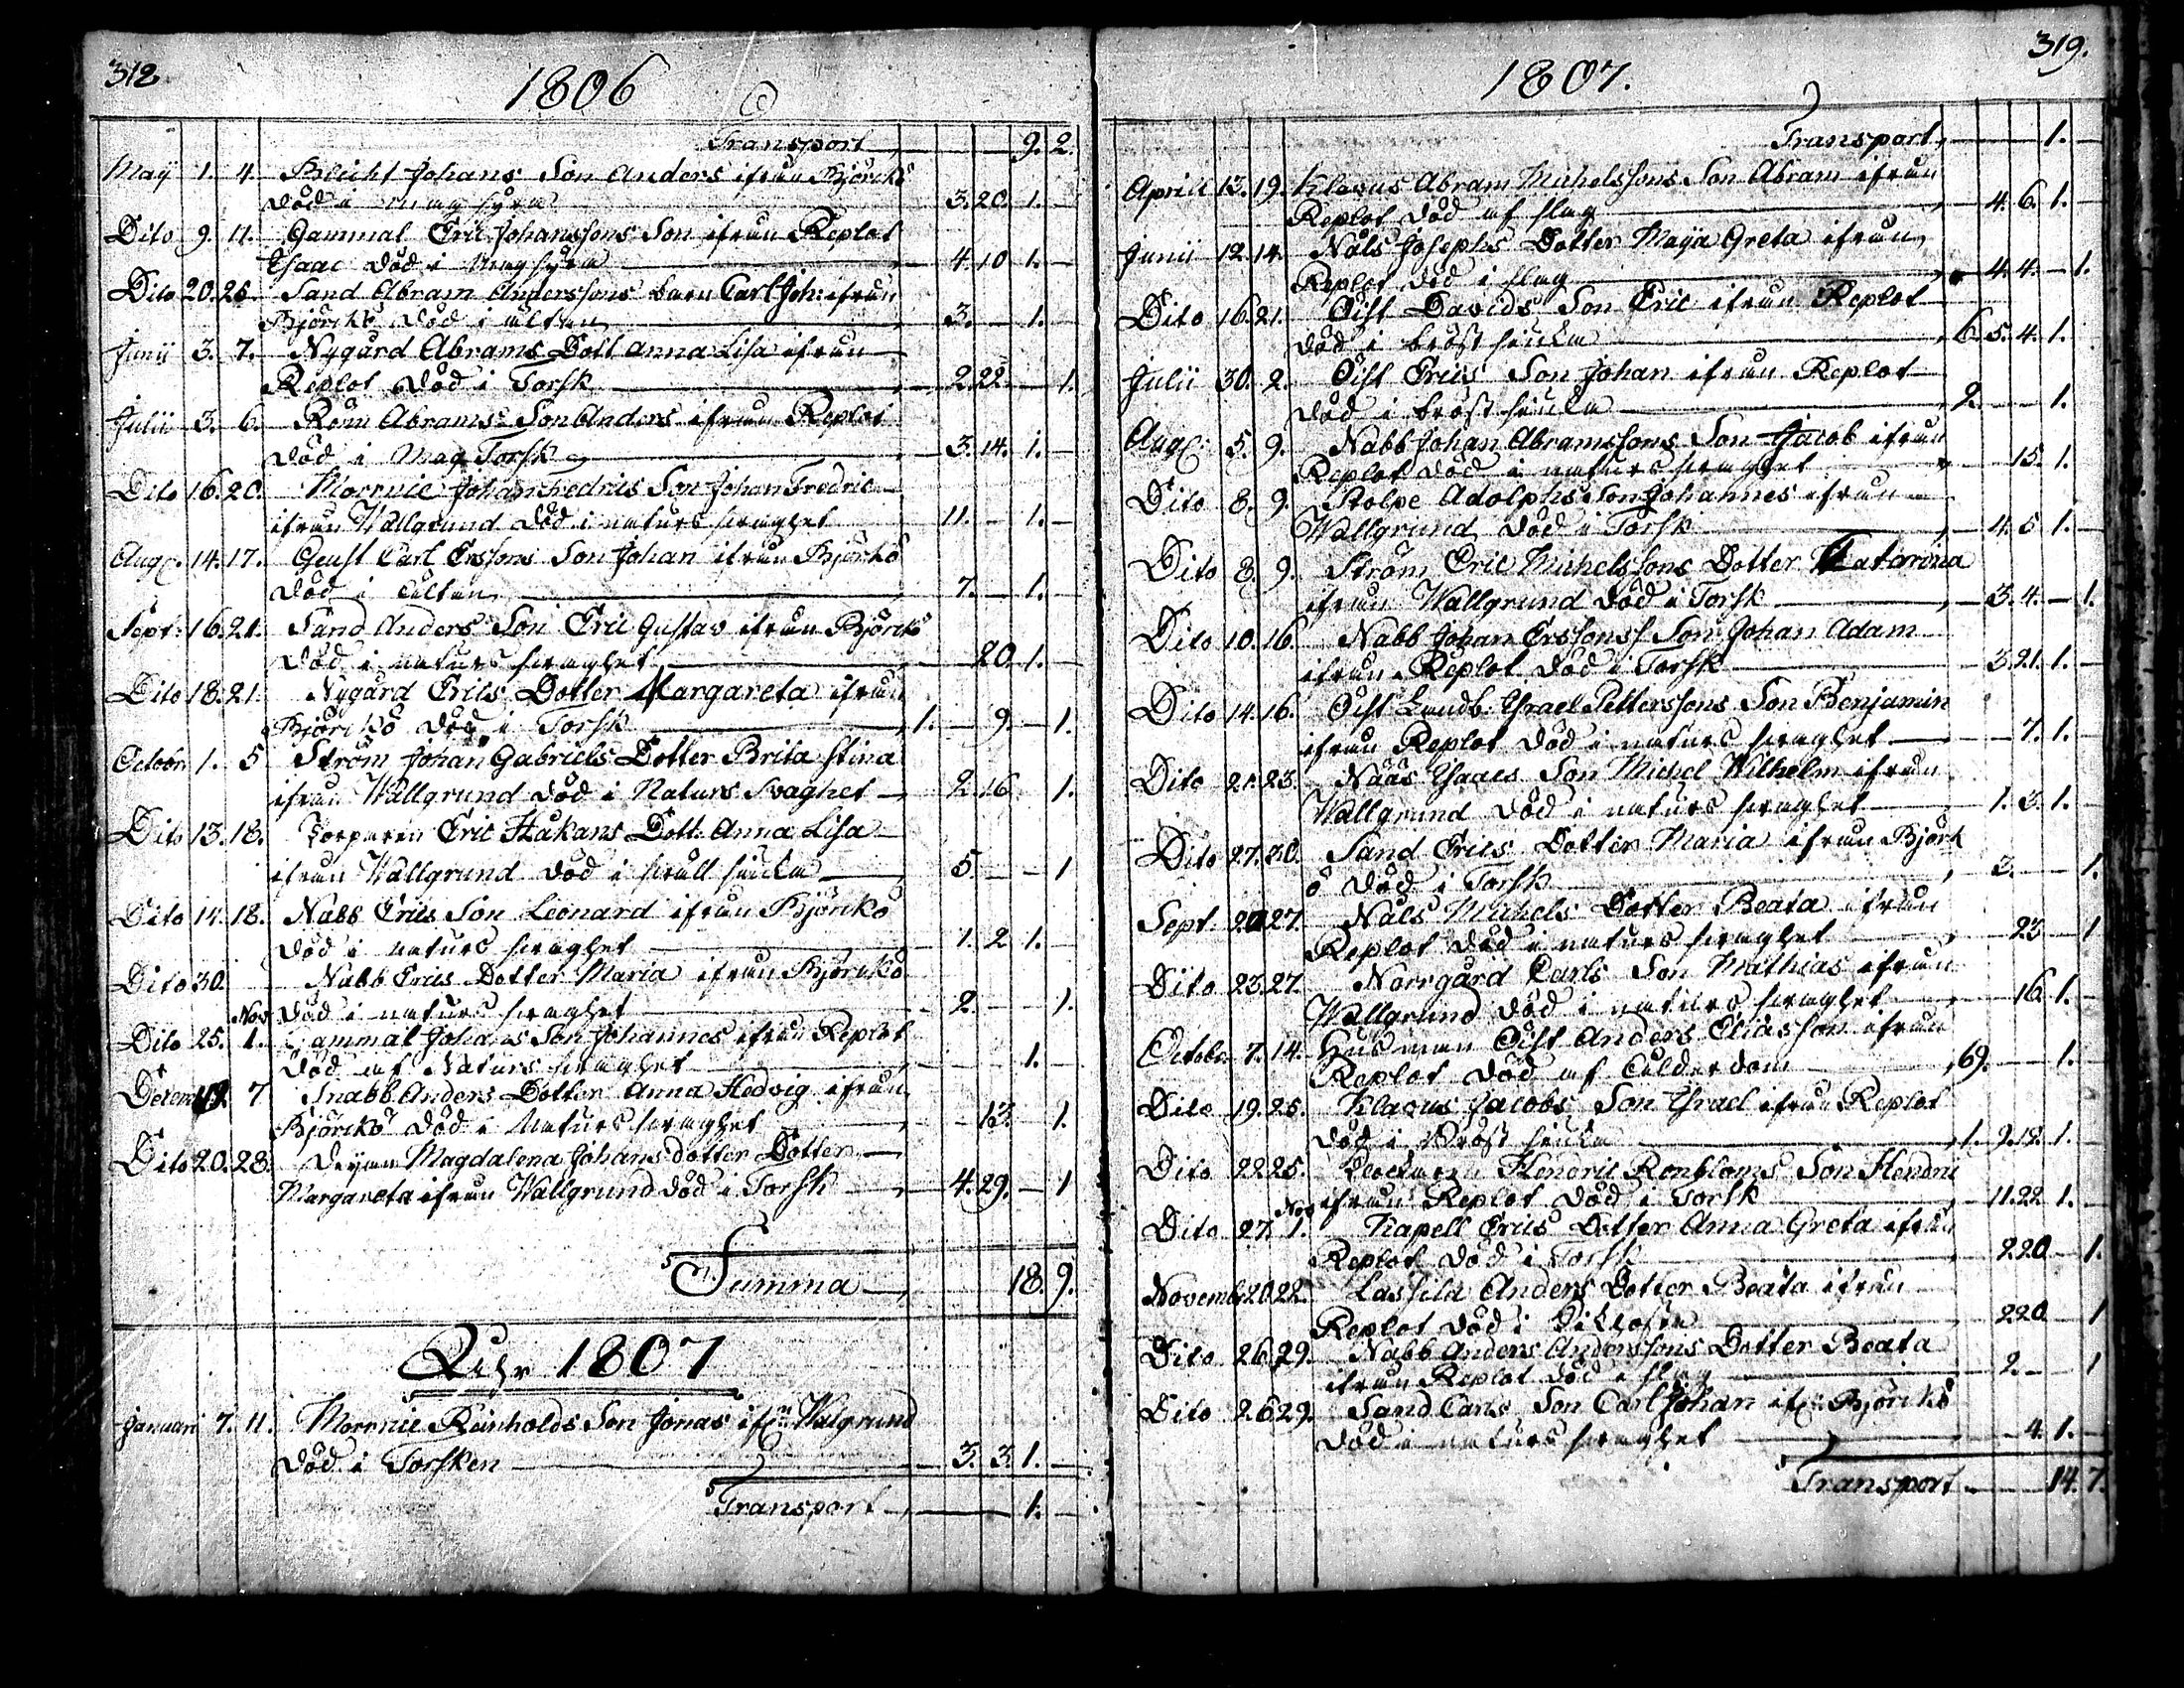 312
1806
Transport 9. 2.
Maij 1. 4. Blicht Johans Son Anders ifrån Björckö
död i magsyra 3. 20. 1. —
Dito 9. 11. Gammal Eric Johanssons Son ifrån Replot
Isaac död i magsyra 4 10 1. —
Dito 20. 25. Sand Abram Anderssons barn Carl Joh: ifrån
Björckö död i ältan 3. — 1. —
Junii 3. 7. Nygård Abrams Dott Anna Lisa ifrån
Replot död i Torsk 2 22 — 1.
Julii 3. 6. Röm Abrams Son Anders ifrån Replot
död i Mag Torsk 3. 14. 1. —
Dito 16. 20. Morrnie Johan Fredrics Son Johan Fredric
ifrån Wallgrund död i naturs svaghet 11. — 1. —
Aug. 14. 17. Carl Erssons Son Johan ifrån Björkö
död i ältan 7. — 1. —
Sept: 16. 21. Sand Anders Son Eric Gustav ifrån Björckö
död i naturs svaghet 20 1. —
Dito 18. 21. Nygård Erics Dotter Margareta ifrån
Björckö död i Torsk 1. — 9. — 1.
Octobr 1. 5 Ström Johan Gabriels Dotter Brita Stina
ifrån Wallgrund död i Naturs Svaghet 2 16 1.
Dito 13. 18. Torparen Eric Håkans Dott: Anna Lisa
ifrån Wallgrund död i siuka 5 — — 1
Dito 14. 18. Nabb Erics Son Leonard ifrån Björckö
död i naturs svaghet 1. 2 1. —
Dito 30. Nabb Erics Dotter Maria ifrån Björckö
Nov död i naturs svaghet 2 — 1.
Dito 25. 1. Gammal Johans Son Johannes ifrån Replot
död af Naturs svaghet 1. —
Decem 7 Snabb Anders Dotter Anna Hedvig ifrån
Björckö död i Naturs svaghet 13. 1.
Dito 20. 28. Magdalena Johans dotter Dotter
Margareta ifrån Wallgrund död i Torsk 4. 29. — 1
Summa 18. 9.
Åhr 1807
Januari 7. 11. Morrnie Reinholds Son Jonas if:n Walgrund
död i Torsken 3. 3 1. —
Transport 1. —
319.
1807.
Transport 1. —
Aprill 13. 19. Klavus Abram Michelssons Son Abram ifrån
Replot död af slag 4. 6. 1. —
Junii 12. 14. Nåls Josephs Dotter Maija Greta ifrån
Replot död i slag 4. 4. — 1.
Dito 16. 21. Öist Davids Son Eric ifrån Replot
död i bröst siuka 6. 5. 4. 1.
Julii 30. 2. Öist Erics Son Johan ifrån Replot
död i bröst siuka 2. — — 1.
Aug: 5. 9. Nabb Johan Abramssons Son Jacob ifrån
Replot död i naturs svaghet 15. 1.
Dito 8. 9. Stolpe Adolphs Son Johannes ifrån
Wallgrund död i Torsk 4. 5 1. —
Dito 8. 9. Ström Eric Michelssons Dotter Catarina
ifrån Wallgrund död i Torsk 3. 4. — 1.
Dito 10. 16. Nabb Johan Erssons Son Johan Adam
ifrån Replot död i Torsk 3 21. 1. —
Dito 14. 16. Öist Landb: Israel Petterssons Son Benjamin
ifrån Replot död i naturs svaghet 7. 1. —
Dito 21. 23. Näås Isaacs Son Michel Wilhelm ifrån
Wallgrund död i naturs svaghet 1. 3. 1. —
Dito 27. 30. Sand Erics Dotter Maria ifrån Björk
ö död i Torsk 3. — 1.
Sept. 20 27. Nåls Michels Dotter Beata ifrån
Replot död i naturs svaghet 23 — 1
Dito 23. 27. Norrgård Carls Son Mathias ifrån
Wallgrund död i naturs svaghet 16 1. —
Octobr 7. 14. Husman Öist Anders Eliasson ifrån
Replot död af ålderdom 69. — — 1.
Dito 19. 25. Klavus Jacobs Son Israel ifrån Replot
död i Bröst siuka 1. 9. 12. 1. —
Dito 22 25. Klockaren Hendric Renbloms Son Hendric
ifrån Replot död i Torsk 11. 22 1. —
Nov
Dito 27. 1. Kapell Erics Dotter Anna Greta ifrån
Replot död i Torsk 2 20 — 1.
Novemb: 20 22. Lassila Anders Dotter Beata ifrån
Replot död i 2 20 1
Dito 26 29. Nabb Anders Anderssons Dotter Beata
ifrån Replot död i slag 2 — 1
Dito 26 29. Sand Carls Son Carl Johan if:n Björckö
död i naturs svaghet 4. 1. —
Transport 14. 7.